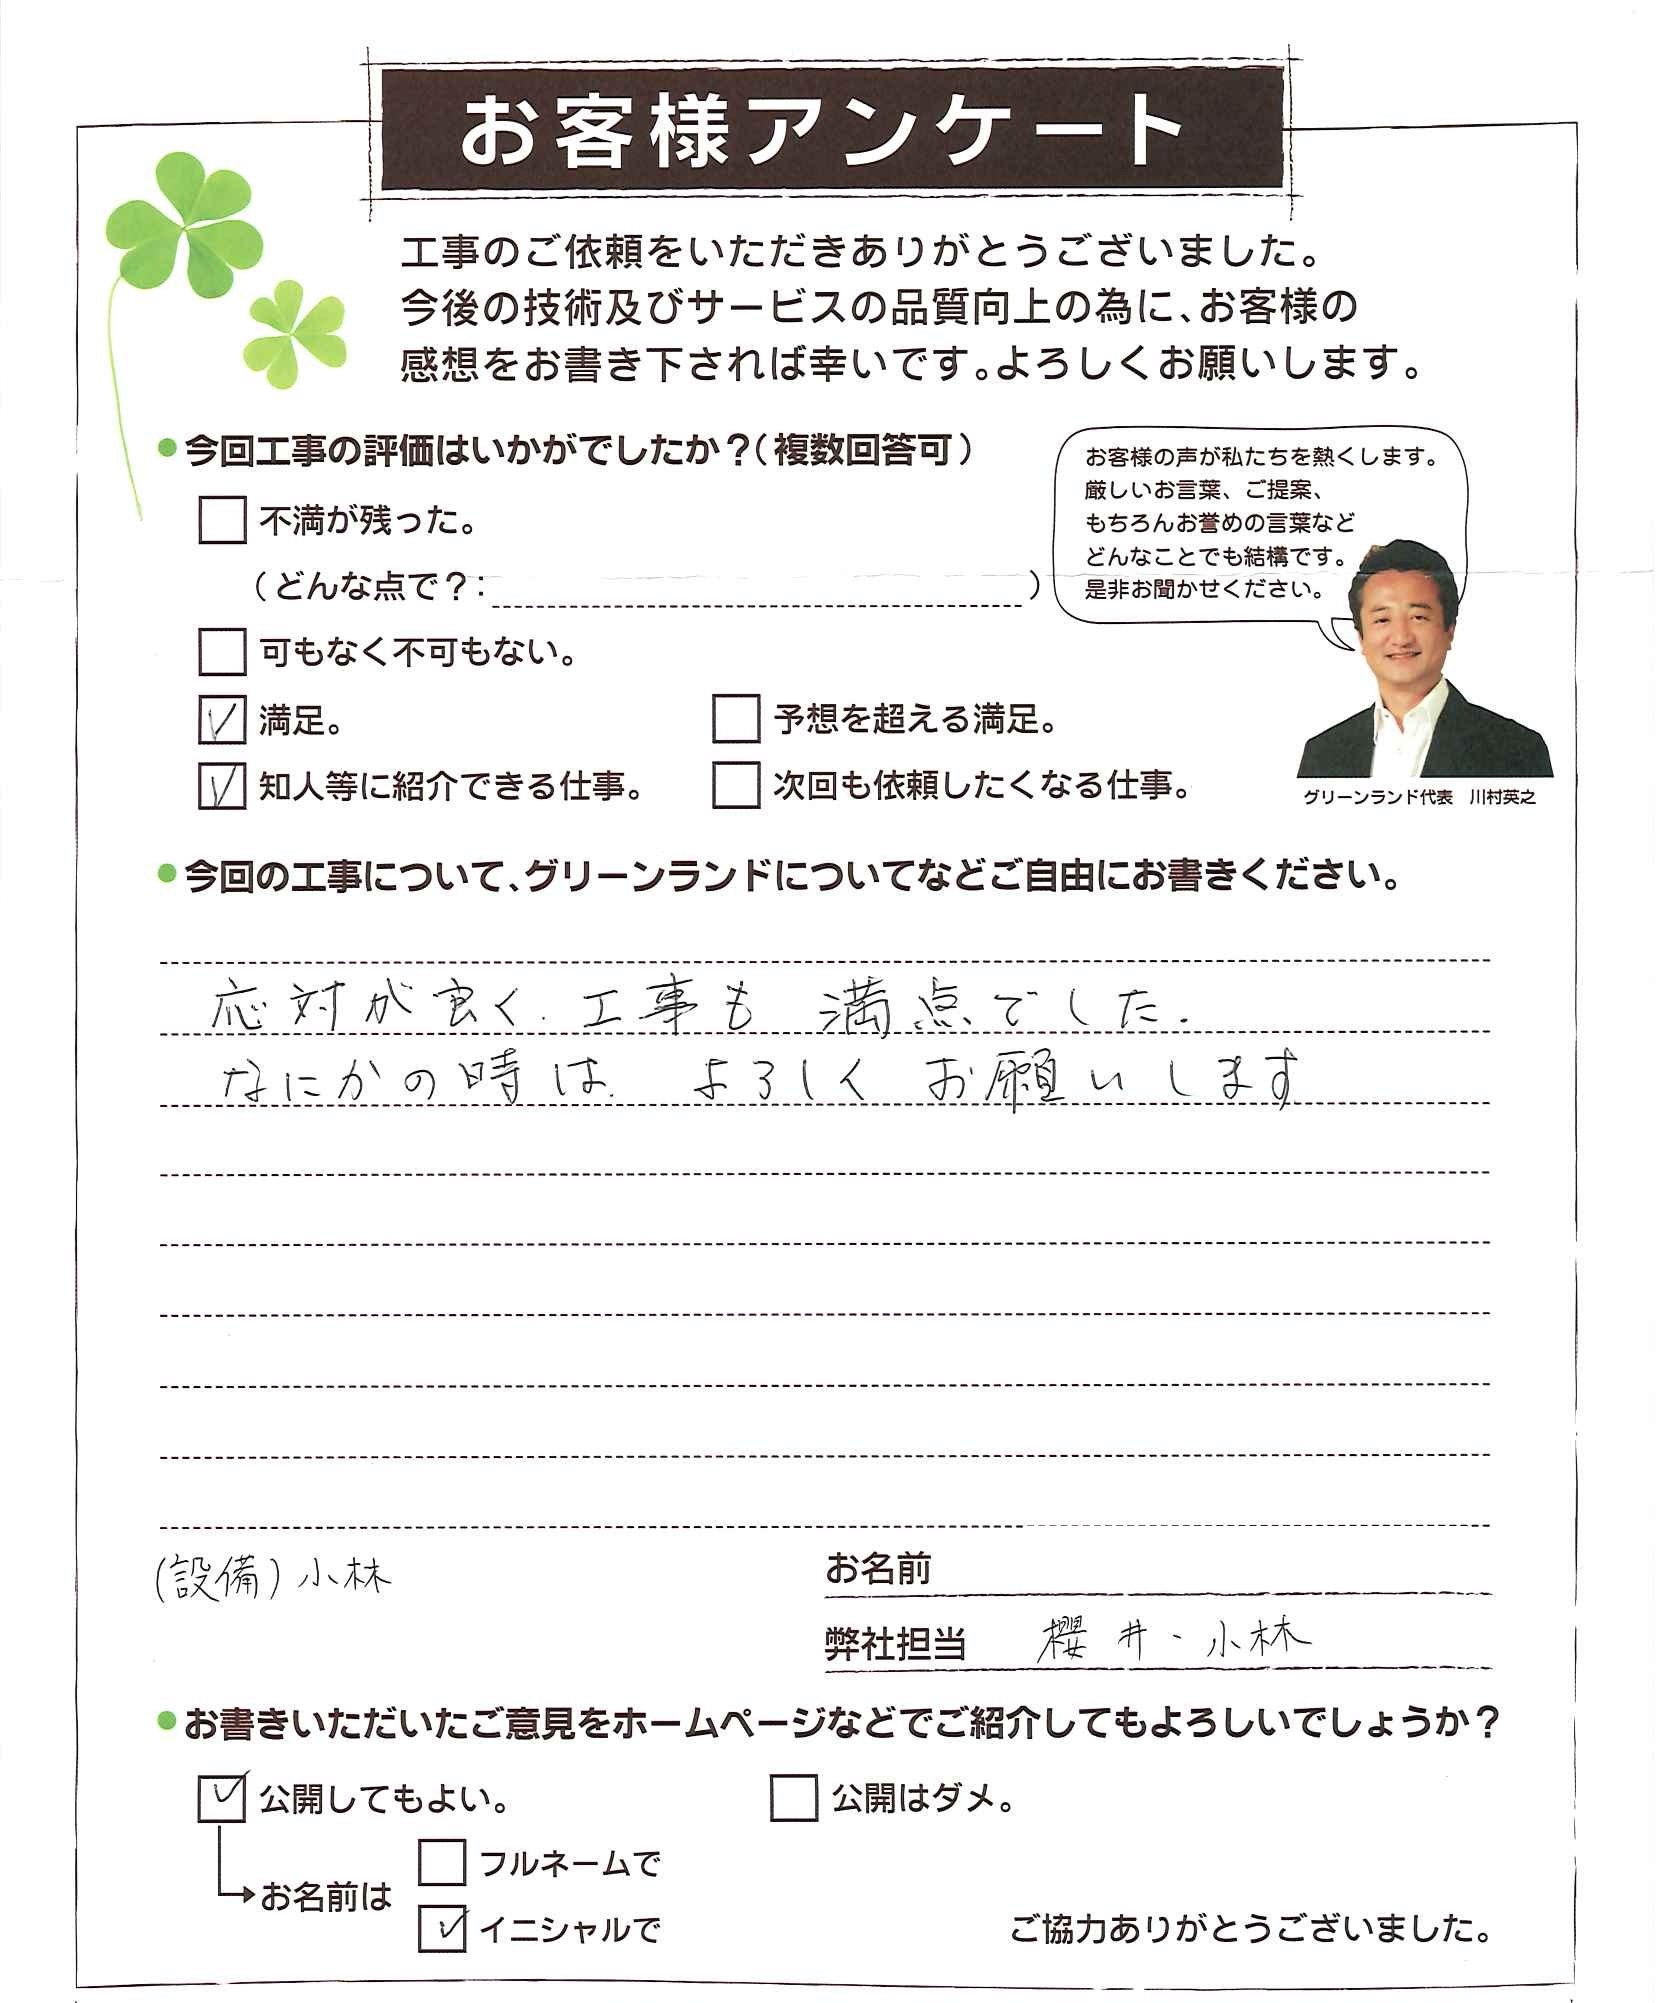 お客様アンケート
工事のご依頼をいただきありがとうございました。
今後の技術及びサービスの品質向上の為に、お客様の
感想をお書き下されば幸いです。よろしくお願いします。
●今回工事の評価はいかがでしたか？（複数回答可）
不満が残った。
（どんな点で？：　）
可もなく不可もない。
満足。
予想を超える満足。
知人等に紹介できる仕事。
次回も依頼したくなる仕事。
お客様の声が私たちを熱くします。
厳しいお言葉、ご提案、
もちろんお誉めの言葉など
どんなことでも結構です。
是非お聞かせください。
グリーンランド代表　川村英之
●今回の工事について、グリーンランドについてなどご自由にお書きください。
応対が良く. 工事も 満点でした.
なにかの時は. よろしく お願いします
(設備) 小林
お名前
弊社担当　櫻井・小林
●お書きいただいたご意見をホームページなどでご紹介してもよろしいでしょうか？
公開してもよい。
公開はダメ。
お名前は
フルネームで
イニシャルで
ご協力ありがとうございました。